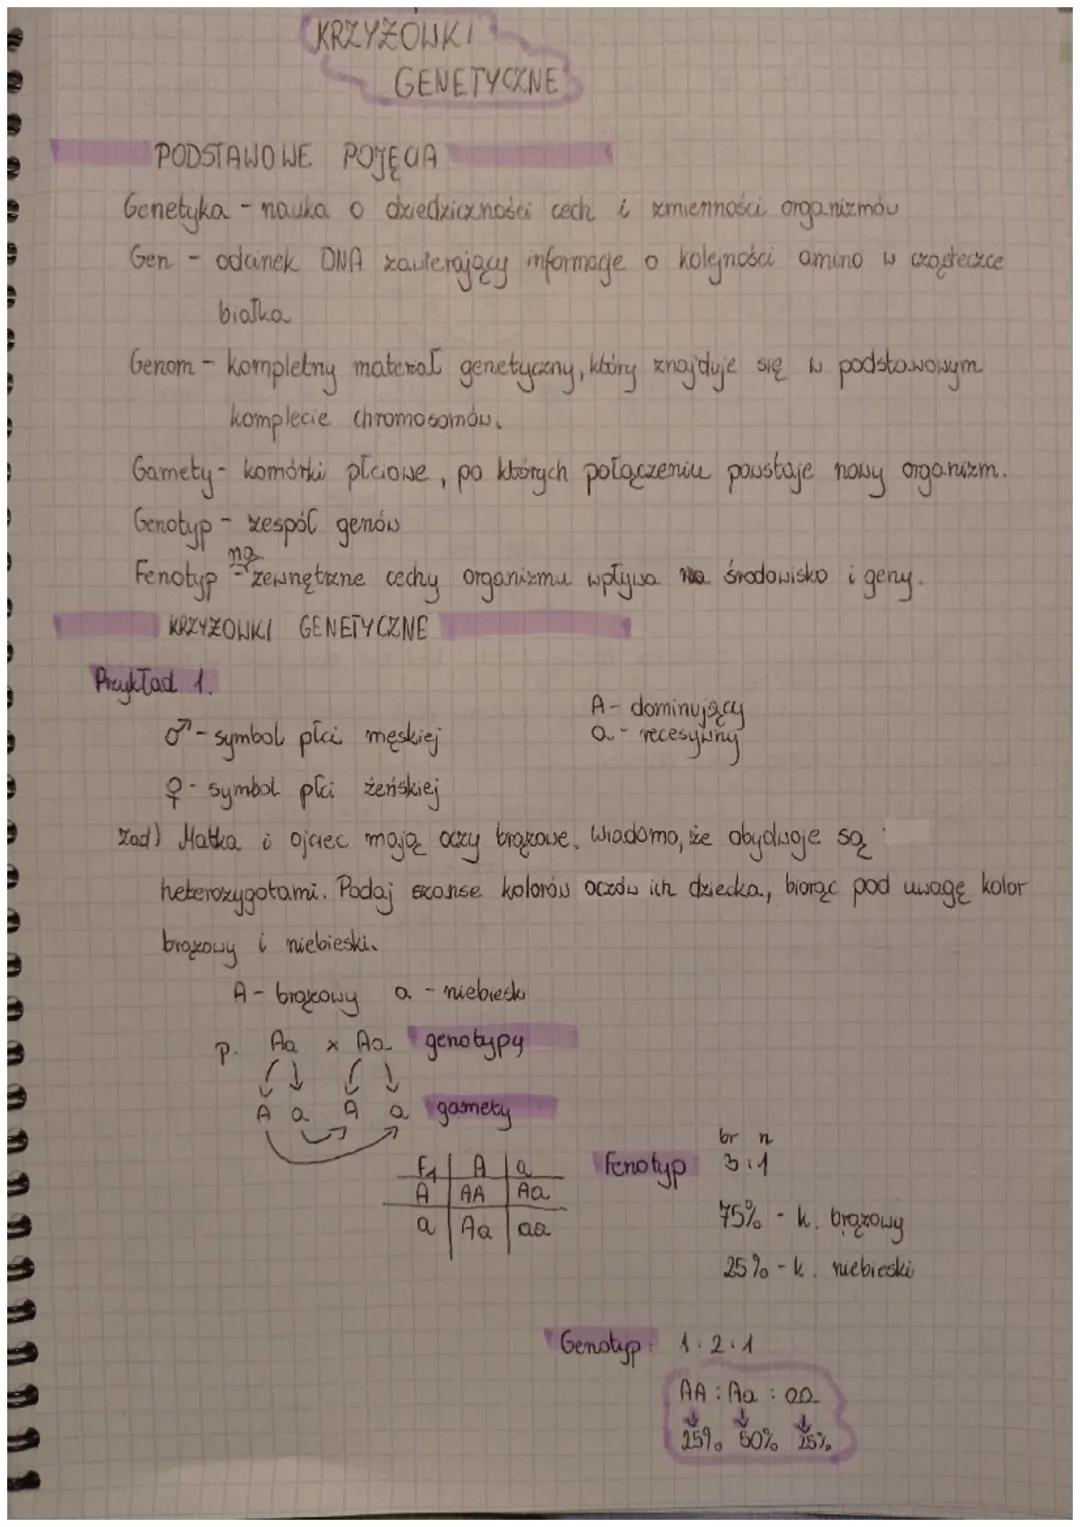 KRZYŻOWKI
GENETYCZNE
PODSTAWOWE POJĘCIA
Genetyka - nauka o dziedziczności cech i zmienności organizmów
Gen - odcinek DNA zawierający informacje o kolejności amino w cząsteczce
białka
Genom - kompletny materiał genetyczny, który znajduje się w podstawowym
komplecie chromosomów.
Gamety - komórki płciowe, po których połączeniu powstaje nowy organizm.
Genotyp - zespół genów
na
Fenotyp - zewnętrzne cechy organizmu wpływa środowisko i geny.
KRZYŻOWKI GENETYCZNE
Przykład 1.
A - dominujący
♂ - symbol płci męskiej
a - recesywny
♀ - symbol płci żeńskiej
Zad) Matka i ojciec mają oczy brązowe. Wiadomo, że obydwoje są
heterozygotami. Podaj szanse kolorów oczów ich dziecka, biorąc pod uwagę kolor
brązowy i niebieski.
A - brązowy a - niebieski
p. Aa x Aa genotypy
A a A a gamety
F1 A a
A AA Aa
a Aa aa
br n
Fenotyp 3:1
75% - k. brązowy
25% - k. niebieski
Genotyp: 1:2:1
AA : Aa : aa
25% 50% 25%